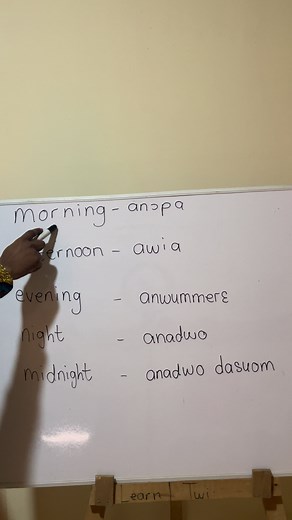 morning - anɔpa
ernoon - awia
evening - anwummerɛ
night - anadwo
midnight - anadwo dasuom
Learn Twi